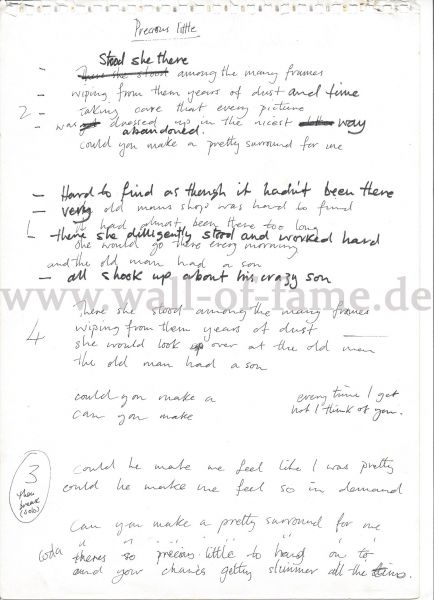 Precious little
Stood she there
- There she stood among the many frames
- wiping from them years of dust and time
2 - taking care that every picture
- was dressed up in the nicest way
abandoned.
could you make a pretty surround for me
- Hard to find as though it hadn't been there
- very old mans shop was hard to find
1 it had almost been there too long
- there she dilligently stood and worked hard
she would go there every morning
and the old man had a son
- all shook up about his crazy son
www.wall-of-fame.de
There she stood among the many frames
wiping from them years of dust
4 she would look up over at the old man
the old man had a son
could you make a every time I get
can you make hot I think of you.
3 could he make me feel like I was pretty
then break (solo) could he make me feel so in demand
can you make a pretty surround for me
coda theres so precious little to hang on to
and your chances getting slimmer all the time.